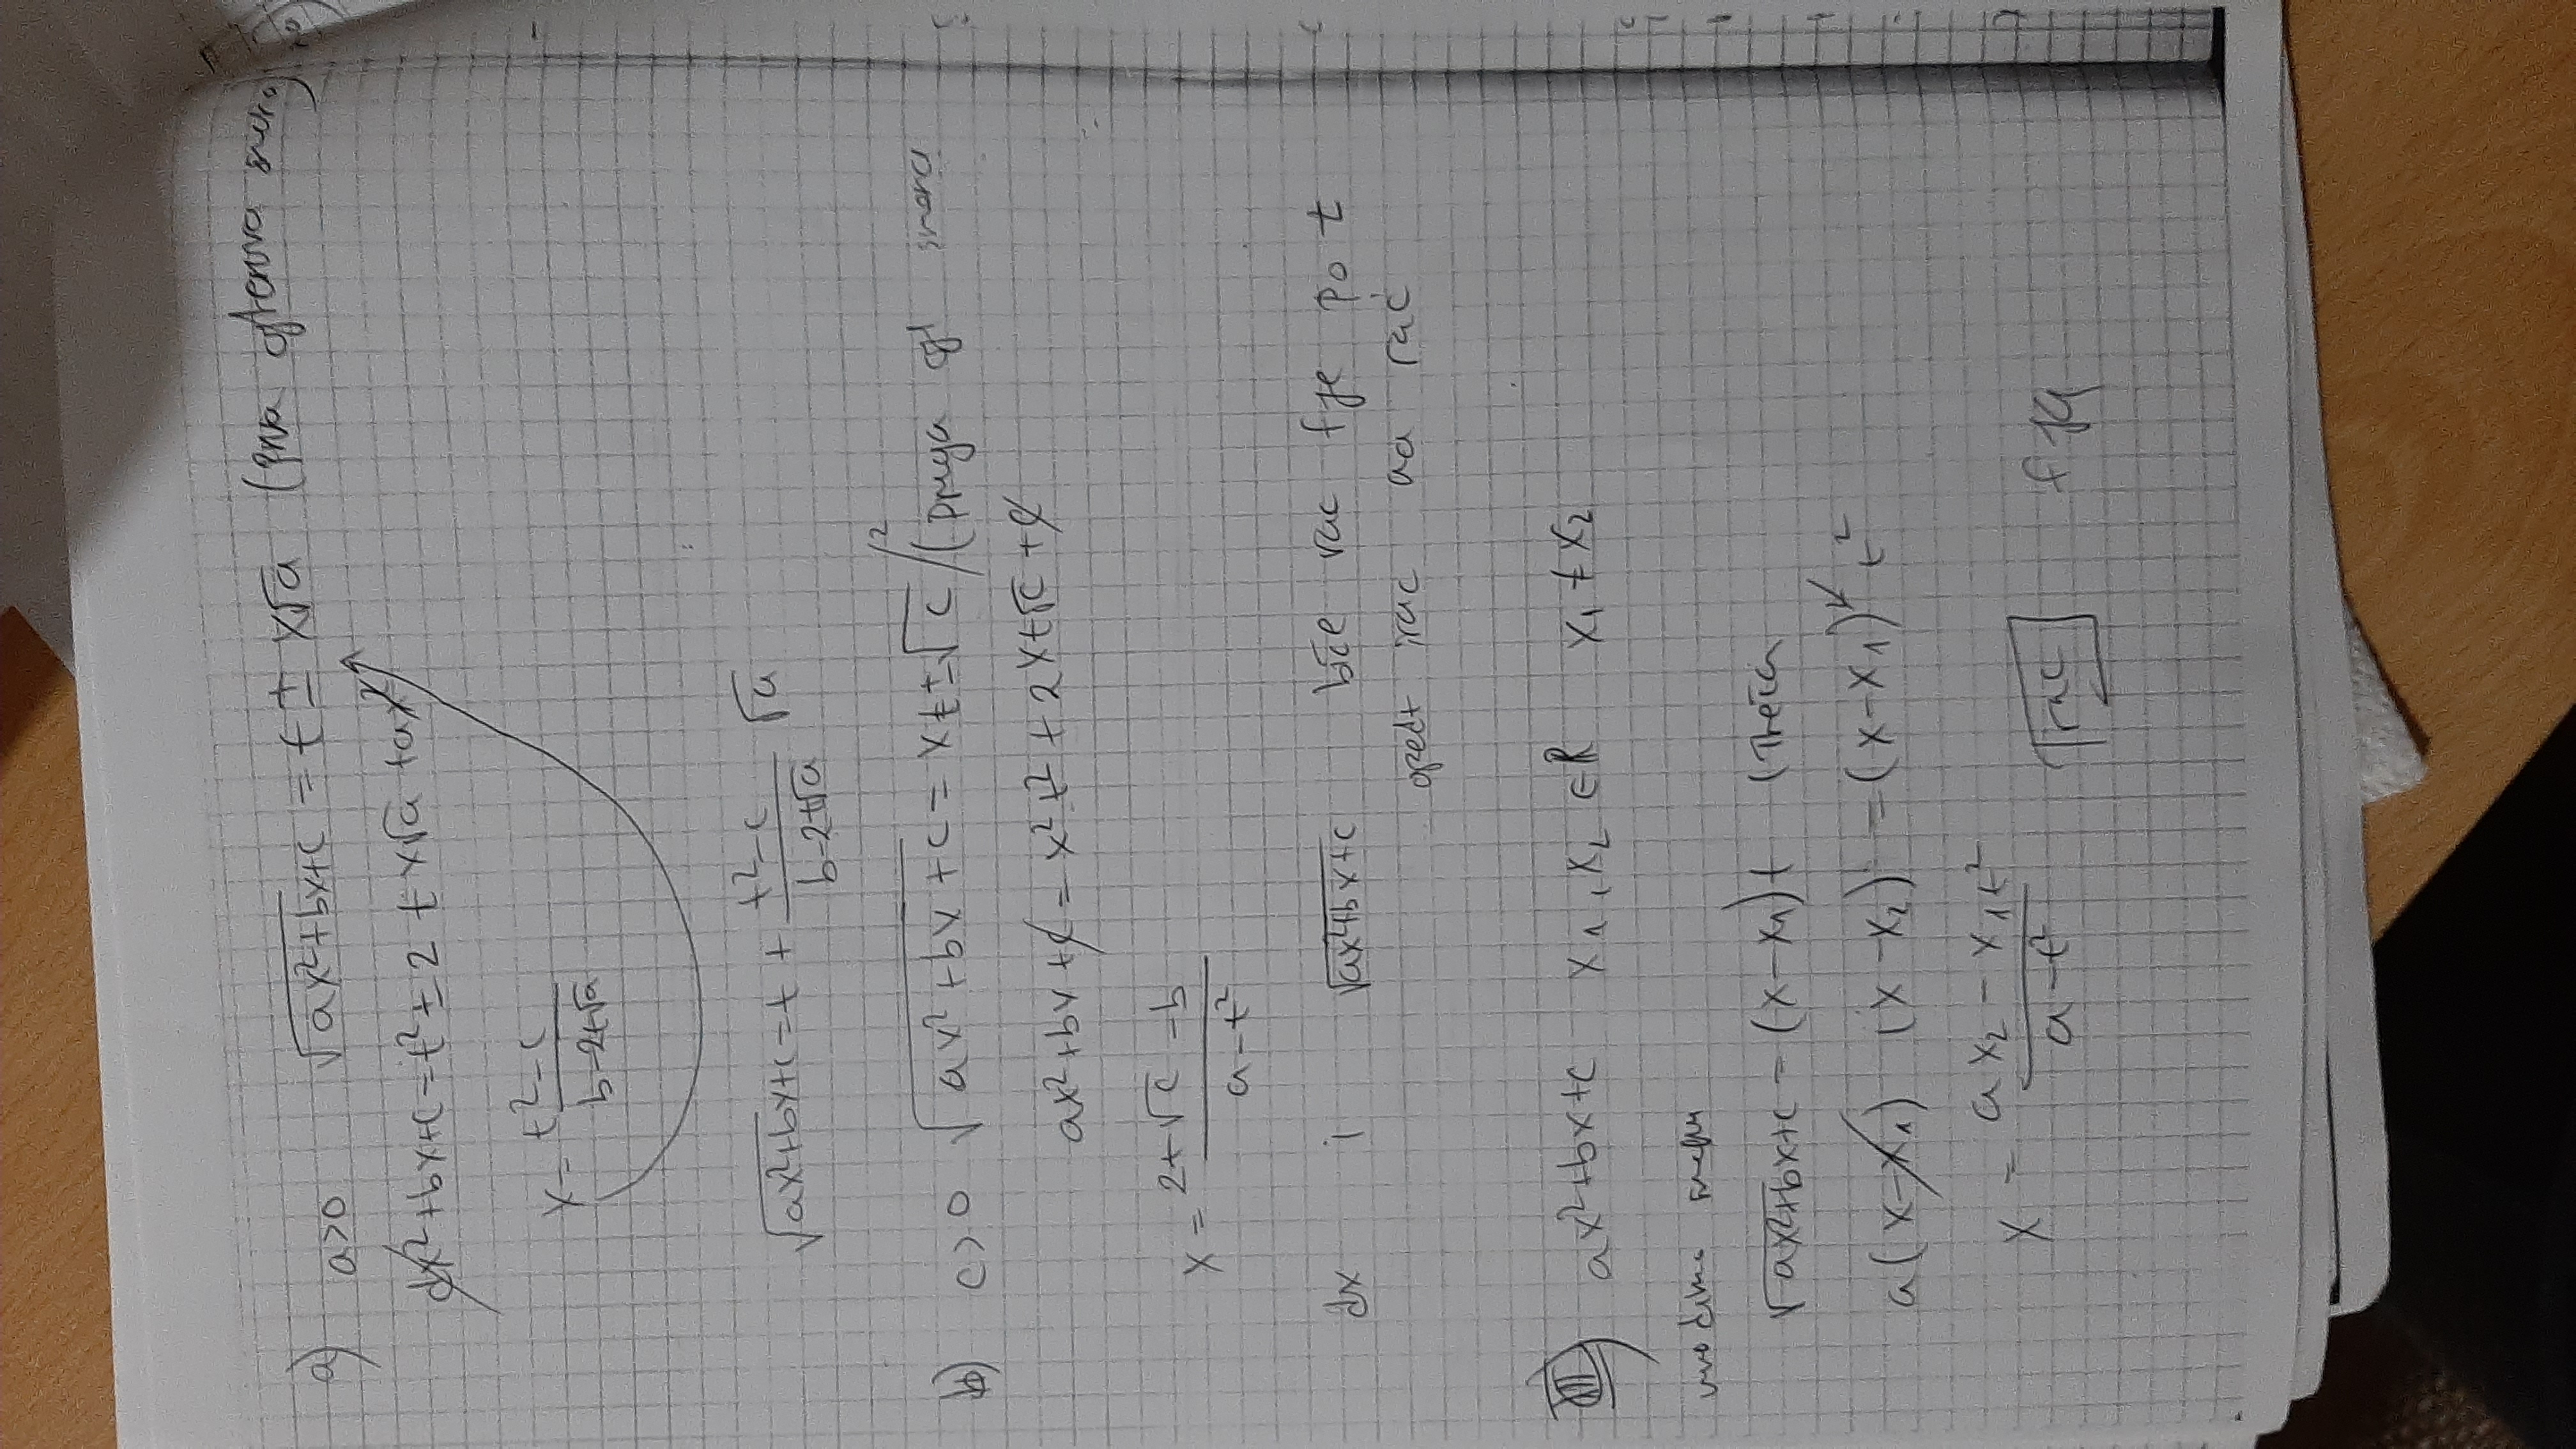 a) a>0 √ax²+bx+c = t ± x√a (prva ojlerova smena)
ax²+bx+c = t² ± 2 t x√a + ax²
x = t²-c / b-2t√a
√ax²+bx+c = t + t²-c / b-2t√a √a
b) c>0 √ax²+bx+c = xt ± √c /² (druga ojl smena
ax²+bx+c = x²t² + 2xt√c + c
x = 2t√c -b / a-t²
dx i √ax²+bx+c biće rac fje po t
opet irac na rac
III) ax²+bx+c x₁,x₂ ∈R x₁≠x₂
uvodimo smenu
√ax²+bx+c = (x-x₁)t (treća
a(x-x₁) (x-x₂) = (x-x₁)² t²
x = ax₂ - x₁t² / a-t² rac fja